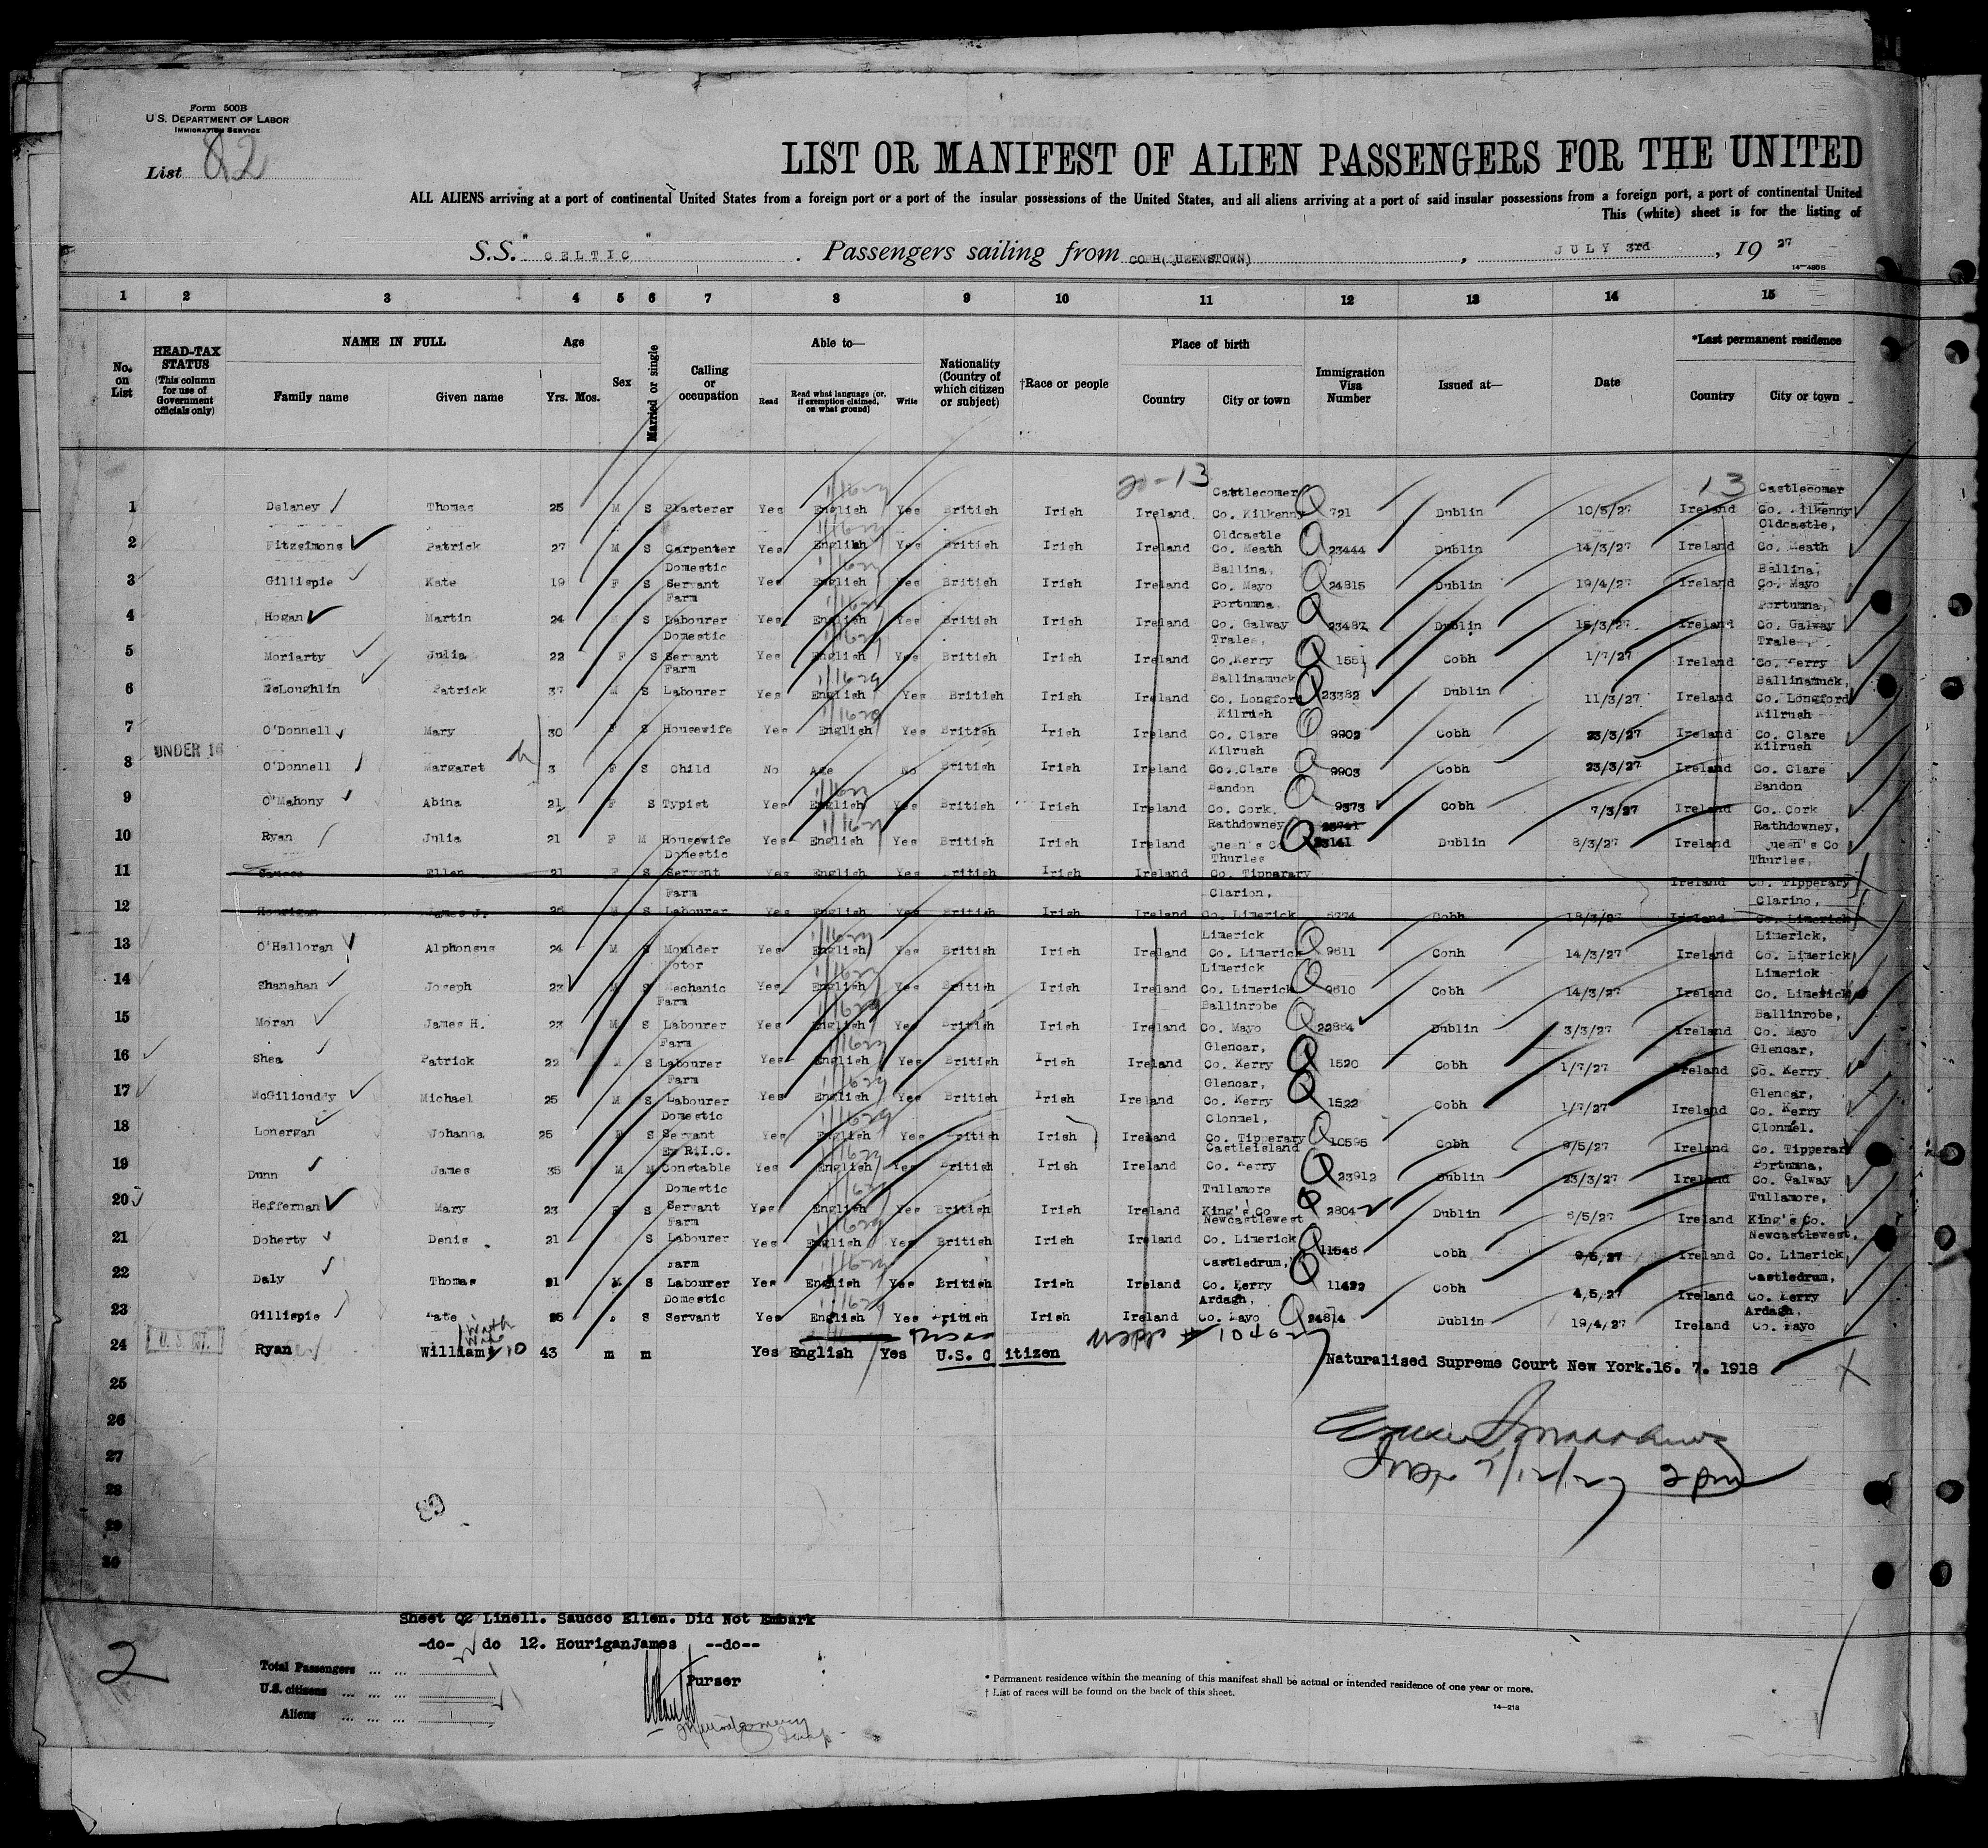 Form 500B
U.S. DEPARTMENT OF LABOR
IMMIGRATION SERVICE
List 82
LIST OR MANIFEST OF ALIEN PASSENGERS FOR THE UNITED
ALL ALIENS arriving at a port of continental United States from a foreign port or a port of the insular possessions of the United States, and all aliens arriving at a port of said insular possessions from a foreign port, a port of continental United
This (white) sheet is for the listing of
S.S. "CELTIC" . Passengers sailing from COBH(QUEENSTOWN) , JULY 3rd , 19 27
14—480B
1 2 3 4 5 6 7 8 9 10 11 12 13 14 15
No. on List
HEAD-TAX STATUS (This column for use of Government officials only)
NAME IN FULL Family name Given name
Age Yrs. Mos.
Sex
Married or single
Calling or occupation
Able to— Read Read what language (or, if exemption claimed, on what ground) Write
Nationality (Country of which citizen or subject)
†Race or people
Place of birth Country City or town
Immigration Visa Number
Issued at—
Date
*Last permanent residence Country City or town
20-13 13
1 Delaney Thomas 25 M S Plasterer Yes English Yes British Irish Ireland Castlecomer Co. Kilkenny 721 Dublin 10/5/27 Ireland Castlecomer Co. Kilkenny
2 Fitzsimons Patrick 27 M S Carpenter Yes English Yes British Irish Ireland Oldcastle Co. Meath 23444 Dublin 14/3/27 Ireland Oldcastle, Co. Meath
3 Gillispie Kate 19 F S Domestic Servant Yes English Yes British Irish Ireland Ballina, Co. Mayo 24815 Dublin 19/4/27 Ireland Ballina, Co. Mayo
4 Hogan Martin 24 S Farm Labourer Yes English Yes British Irish Ireland Portumna, Co. Galway 23487 Dublin 15/3/27 Ireland Portumna, Co. Galway
5 Moriarty Julia 22 F S Domestic Servant Yes English Yes British Irish Ireland Tralee, Co. Kerry 1551 Cobh 1/7/27 Ireland Tralee, Co. Kerry
6 McLoughlin Patrick 37 M S Farm Labourer Yes English Yes British Irish Ireland Ballinamuck Co. Longford 23382 Dublin 11/3/27 Ireland Ballinamuck, Co. Longford
7 O'Donnell Mary 30 F S Housewife Yes English Yes British Irish Ireland Kilrush Co. Clare 9902 Cobh 23/3/27 Ireland Kilrush Co. Clare
8 UNDER 16 O'Donnell Margaret 3 F S Child No Age No British Irish Ireland Kilrush Co. Clare 9903 Cobh 23/3/27 Ireland Kilrush Co. Clare
9 O'Mahony Abina 21 F S Typist Yes English Yes British Irish Ireland Bandon Co. Cork. 9373 Cobh 7/3/27 Ireland Bandon Co. Cork
10 Ryan Julia 21 F M Housewife Yes English Yes British Irish Ireland Rathdowney Queen's Co 23141 Dublin 8/3/27 Ireland Rathdowney, Queen's Co
11 Saucco Ellen 21 F S Domestic Servant Yes English Yes British Irish Ireland Thurles Co. Tipperary Ireland Thurles, Co. Tipperary
12 Hourigan James J. 26 M S Farm Labourer Yes English Yes British Irish Ireland Clarion, Co. Limerick 8774 Cobh 18/3/27 Ireland Clarino, Co. Limerick
13 O'Halloran Alphonsus 24 M S Moulder Yes English Yes British Irish Ireland Limerick Co. Limerick 9611 Conh 14/3/27 Ireland Limerick, Co. Limerick
14 Shanahan Joseph 23 M S Motor Mechanic Yes English Yes British Irish Ireland Limerick Co. Limerick 9610 Cobh 14/3/27 Ireland Limerick Co. Limerick
15 Moran James H. 23 M S Farm Labourer Yes English Yes British Irish Ireland Ballinrobe Co. Mayo 22864 Dublin 3/3/27 Ireland Ballinrobe, Co. Mayo
16 Shea Patrick 22 M S Farm Labourer Yes English Yes British Irish Ireland Glencar, Co. Kerry 1520 Cobh 1/7/27 Ireland Glencar, Co. Kerry
17 McGillicuddy Michael 25 M S Farm Labourer Yes English Yes British Irish Ireland Glencar, Co. Kerry 1522 Cobh 1/7/27 Ireland Glencar, Co. Kerry
18 Lonergan Johanna 25 F S Domestic Servant Yes English Yes British Irish Ireland Clonmel, Co. Tipperary 10595 Cobh 9/5/27 Ireland Clonmel. Co. Tipperary
19 Dunn James 35 M M Ex R.I.C. Constable Yes English Yes British Irish Ireland Castleisland Co. Kerry 23912 Dublin 23/3/27 Ireland Portumna, Co. Galway
20 Heffernan Mary 23 F S Domestic Servant Yes English Yes British Irish Ireland Tullamore King's Co 2804 Dublin 6/5/27 Ireland Tullamore, King's Co.
21 Doherty Denis 21 S Farm Labourer Yes English Yes British Irish Ireland Newcastlewest Co. Limerick 11546 Cobh 9/5/27 Ireland Newcastlewest, Co. Limerick
22 Daly Thomas 21 M S Farm Labourer Yes English Yes British Irish Ireland Castledrum, Co. Kerry 11422 Cobh 4/5/27 Ireland Castledrum, Co. Kerry
23 Gillispie Kate 25 S Domestic Servant Yes English Yes British Irish Ireland Ardagh, Co. Mayo 24814 Dublin 19/4/27 Ireland Ardagh, Co. Mayo
24 U. S. CIT. Ryan William 43 m m Yes English Yes U.S. Citizen Naturalised Supreme Court New York.16. 7. 1918
25
26
27
28
29
30
7/12/27 2 pm
Sheet Q2 Line11. Saucco Ellen. Did Not Embark
-do- do 12. HouriganJames --do--
Purser
2
Total Passengers
U.S. citizens
Aliens
* Permanent residence within the meaning of this manifest shall be actual or intended residence of one year or more.
† List of races will be found on the back of this sheet.
14—218